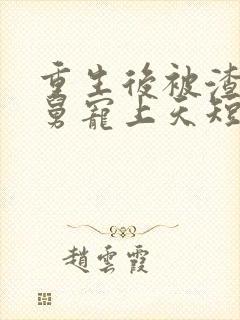 重生後被渣
舅寵上天短
趙雲霞